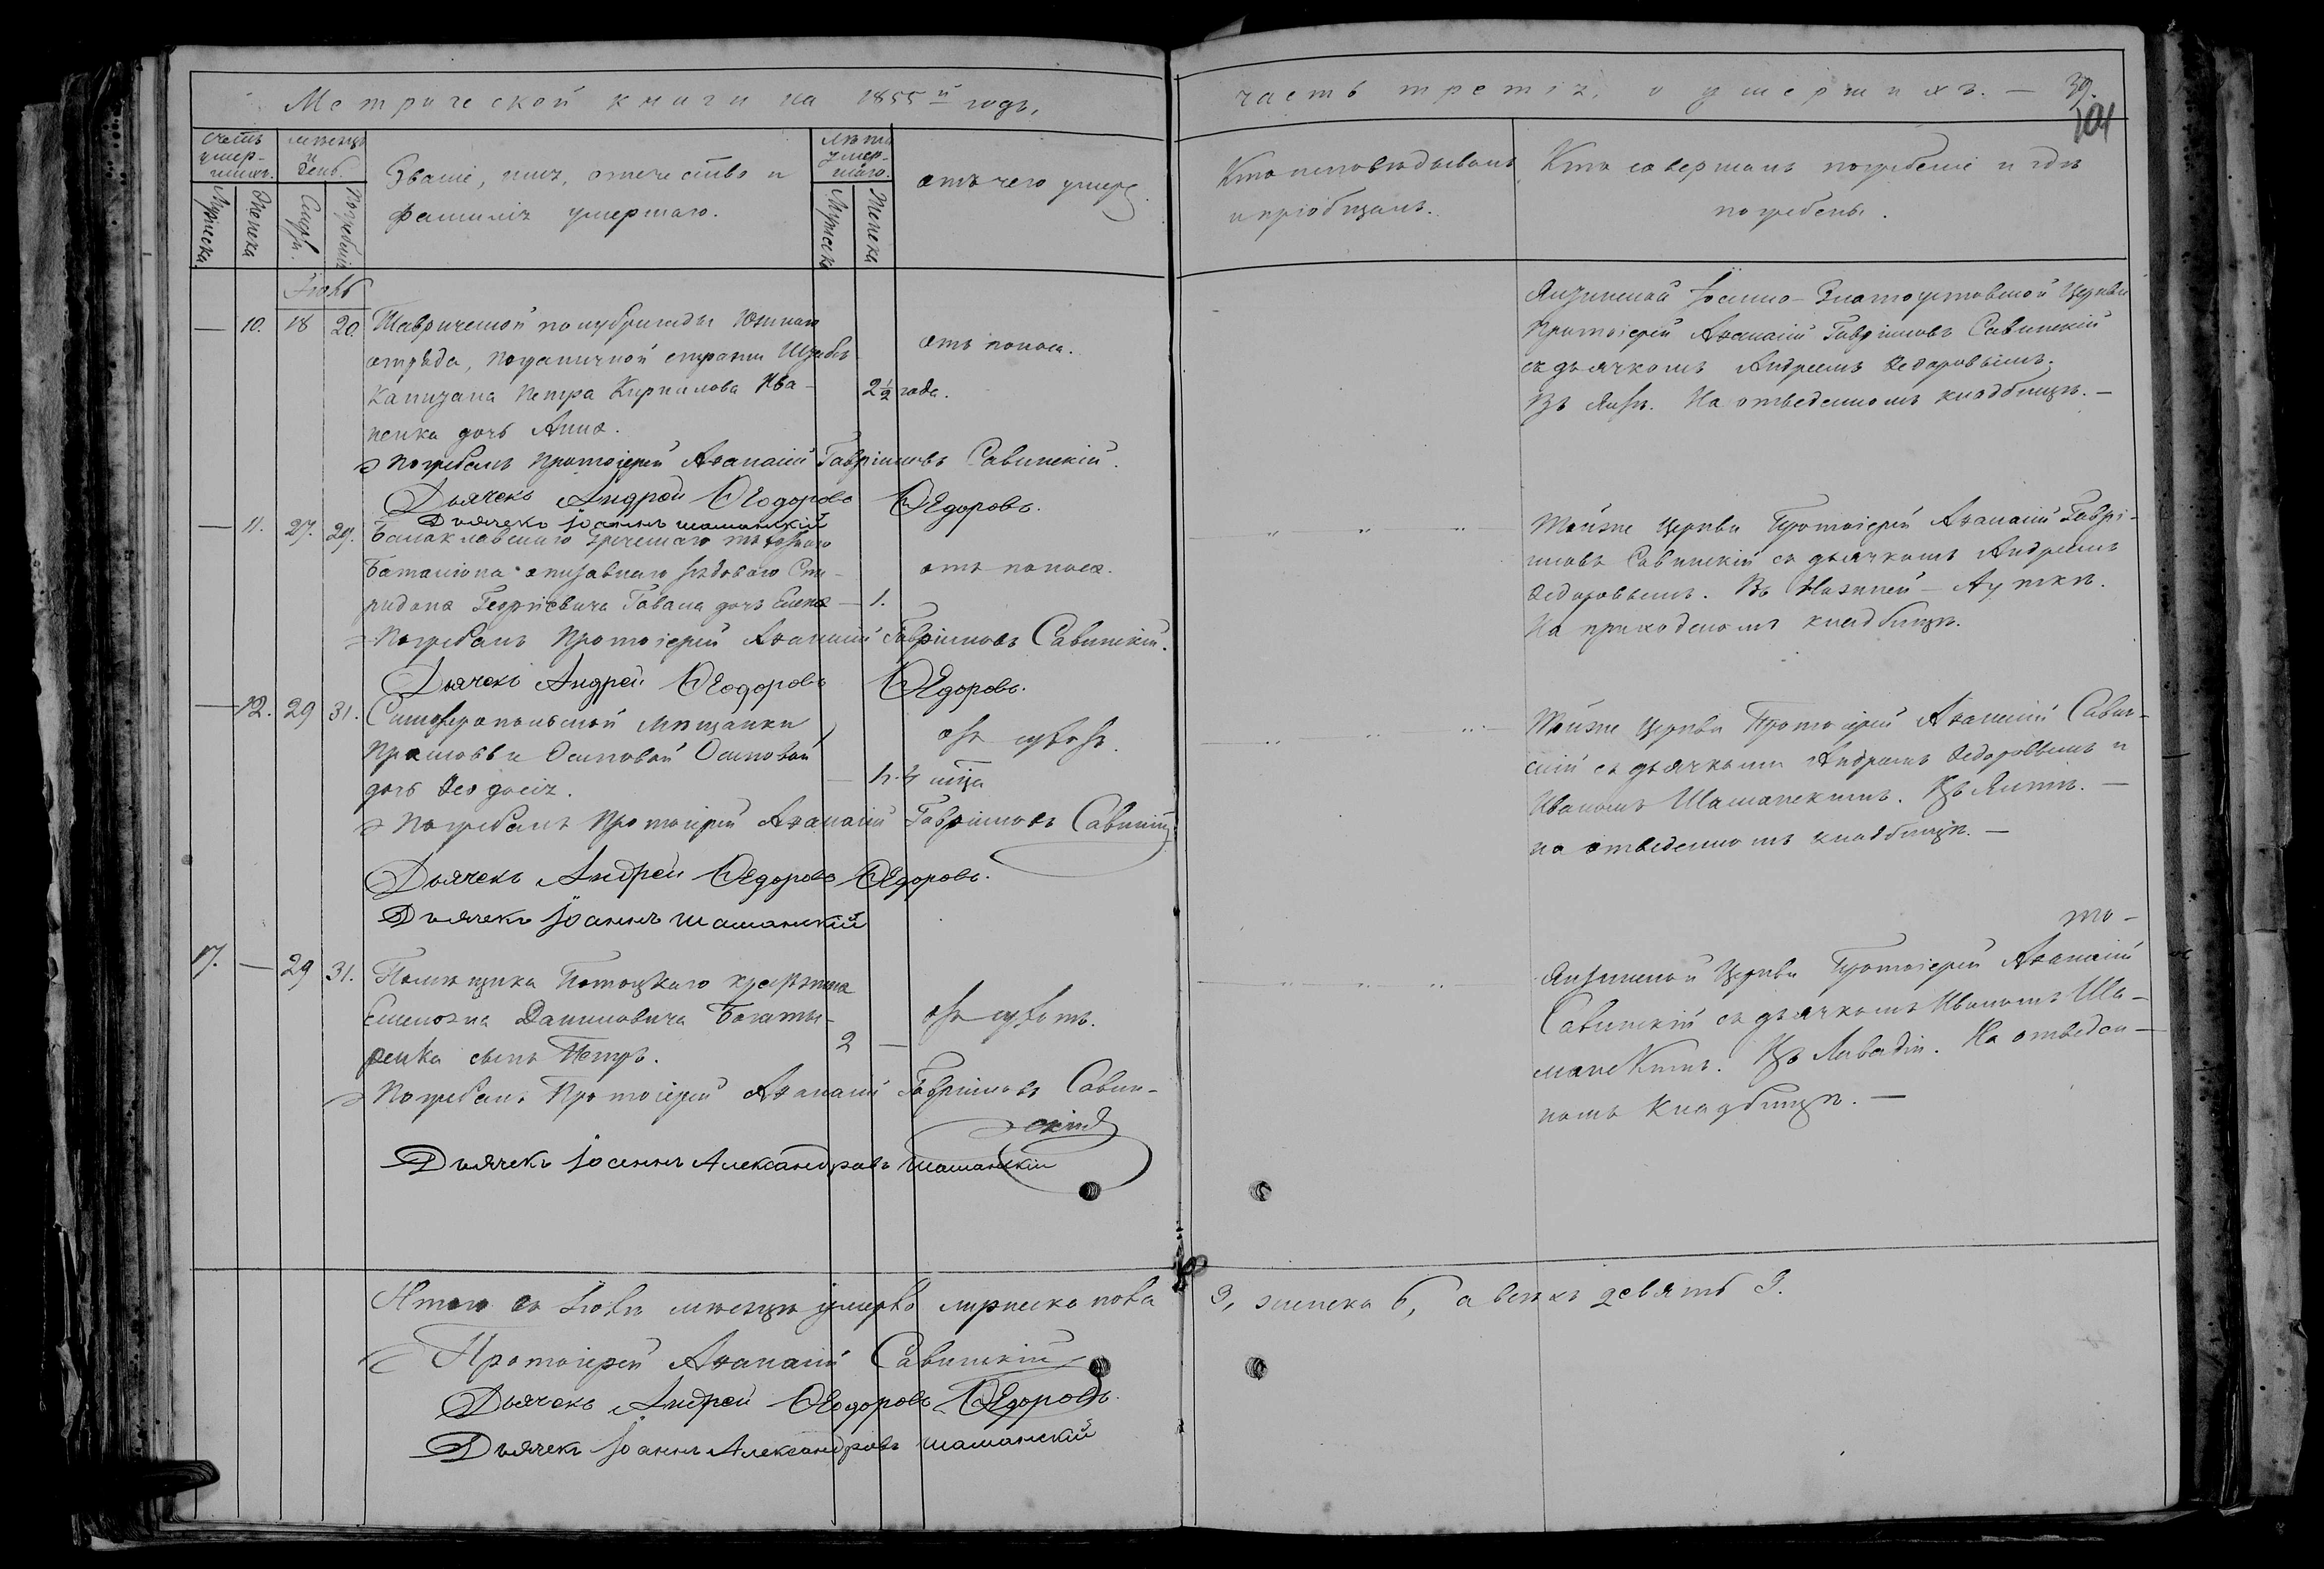 Метрической книги на 1855й годъ,
часть третія, о умершихъ. — 39.
101
Счетъ умер-
шихъ.
Мѣсяцъ
и
день.
Званіе, имя, отечество и
фамилія умершаго.
Лѣта
умер-
шаго.
отъ чего умеръ
Мужеска.
Женска
Смерт.
Погребенія
Мужеска
Женска
Кто исповѣдывалъ
и пріобщалъ.
Кто совершалъ погребеніе и гдѣ
погребены.
Іюль
— 10. 18 20. Таврической полубригады Южнаго
отряда, пограничной стражи Штабсъ
Капитана Петра Кирилова Ива-
ненка дочь Анна.
2½ года.
отъ поноса.
Погребалъ Протоіерей Аѳанасій Гавріиловъ Савинскій.
Дьячекъ Андрей Ѳеодоровъ Ѳедоровъ.
Дьячекъ Іоаннъ Шаманскій
Ялтинской Іоанно-Златоустовской Церкви
Протоіерей Аѳанасій Гавріиловъ Савинскій
съ дьячкомъ Андреемъ Ѳедоровымъ.
Въ Ялтѣ. На отведенномъ кладбищѣ. —
— 11. 27. 29. Балаклавскаго Греческаго пѣхотнаго
Баталіона отставнаго рядоваго Спи-
ридона Георгіевича Гавала дочь Елена — 1.
отъ поноса.
Погребалъ Протоіерей Аѳанасій Гавріиловъ Савинскій.
Дьячекъ Андрей Ѳеодоровъ Ѳедоровъ.
Тойже Церкви Протоіерей Аѳанасій Гаврі-
иловъ Савинскій съ дьячкомъ Андреемъ
Ѳедоровымъ. Въ Нижней-Ауткѣ.
На приходскомъ кладбищѣ.
— 12. 29 31. Симферопольской Мѣщанки
Прасковьи Осиповой Осиповой
дочь Ѳеодосія.
— 4 м-ца
Погребалъ Протоіерей Аѳанасій Гавріиловъ Савинскій
Дьячекъ Андрей Ѳедоровъ Ѳедоровъ.
Дьячекъ Іоаннъ Шаманскій
Тойже Церкви Протоіерей Аѳанасій Савин-
скій съ дьячками Андреемъ Ѳедоровымъ и
Иваномъ Шаманскимъ. Въ Ялтѣ. —
на отведенномъ кладбищѣ. —
17. — 29 31. Помѣщика Потоцкаго крестьянина
Данииловича Богаты-
ренка сынъ Петръ.
2 —
Погребалъ Протоіерей Аѳанасій Гавріиловъ Савин-
скій
Дьячекъ Іоаннъ Александровъ Шаманскій
то-
Ялтинской Церкви Протоіерей Аѳанасій
Савинскій съ дьячкомъ Иваномъ Ша-
манскимъ. Въ Ливадіи. На отведен-
номъ кладбищѣ. —
Итого въ Іюлѣ мѣсяцѣ умерло мужеска пола
3, женска 6, а всѣхъ девять 9.
Протоіерей Аѳанасій Савинскій
Дьячекъ Андрей Ѳеодоровъ Ѳедоровъ.
Дьячекъ Іоаннъ Александровъ Шаманскій